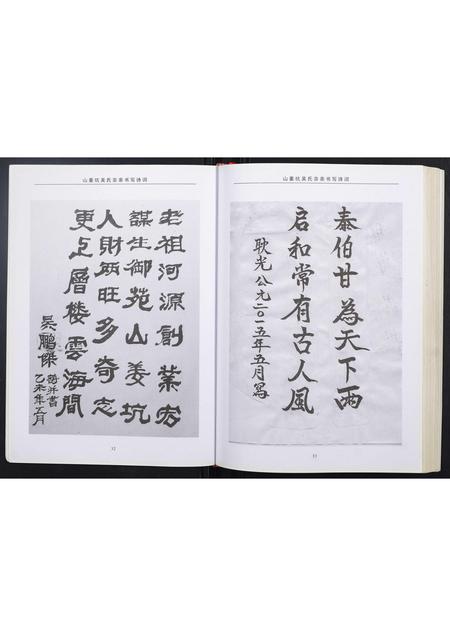 山薑坑吴氏宗亲书写诗词
老祖河源創業宏
謀生御苑山姜坑
人財两旺多奇志
更上層楼雲海間
吴鵬傑 詩并書
乙未年五月
32
山薑坑吴氏宗亲书写诗词
泰伯甘為天下雨
启和常有古人風
耿光 公元二〇一五年五月寫
33